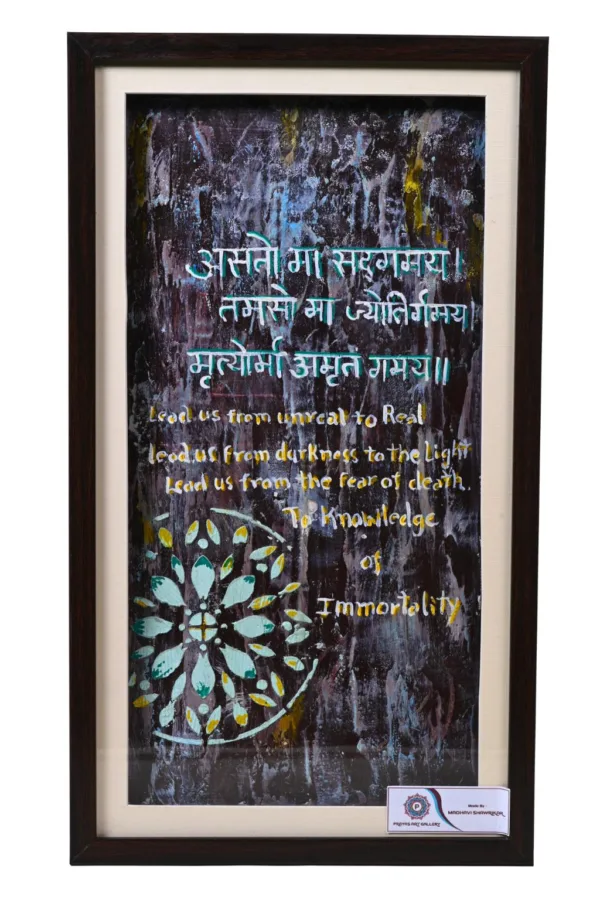 असतो मा सद्गमय।
तमसो मा ज्योतिर्गमय
मृत्योर्मा अमृतं गमय॥
Lead us from unreal to Real
lead us from darkness to the Light
Lead us from the fear of death.
To Knowledge
of
Immortality
P
Made By :